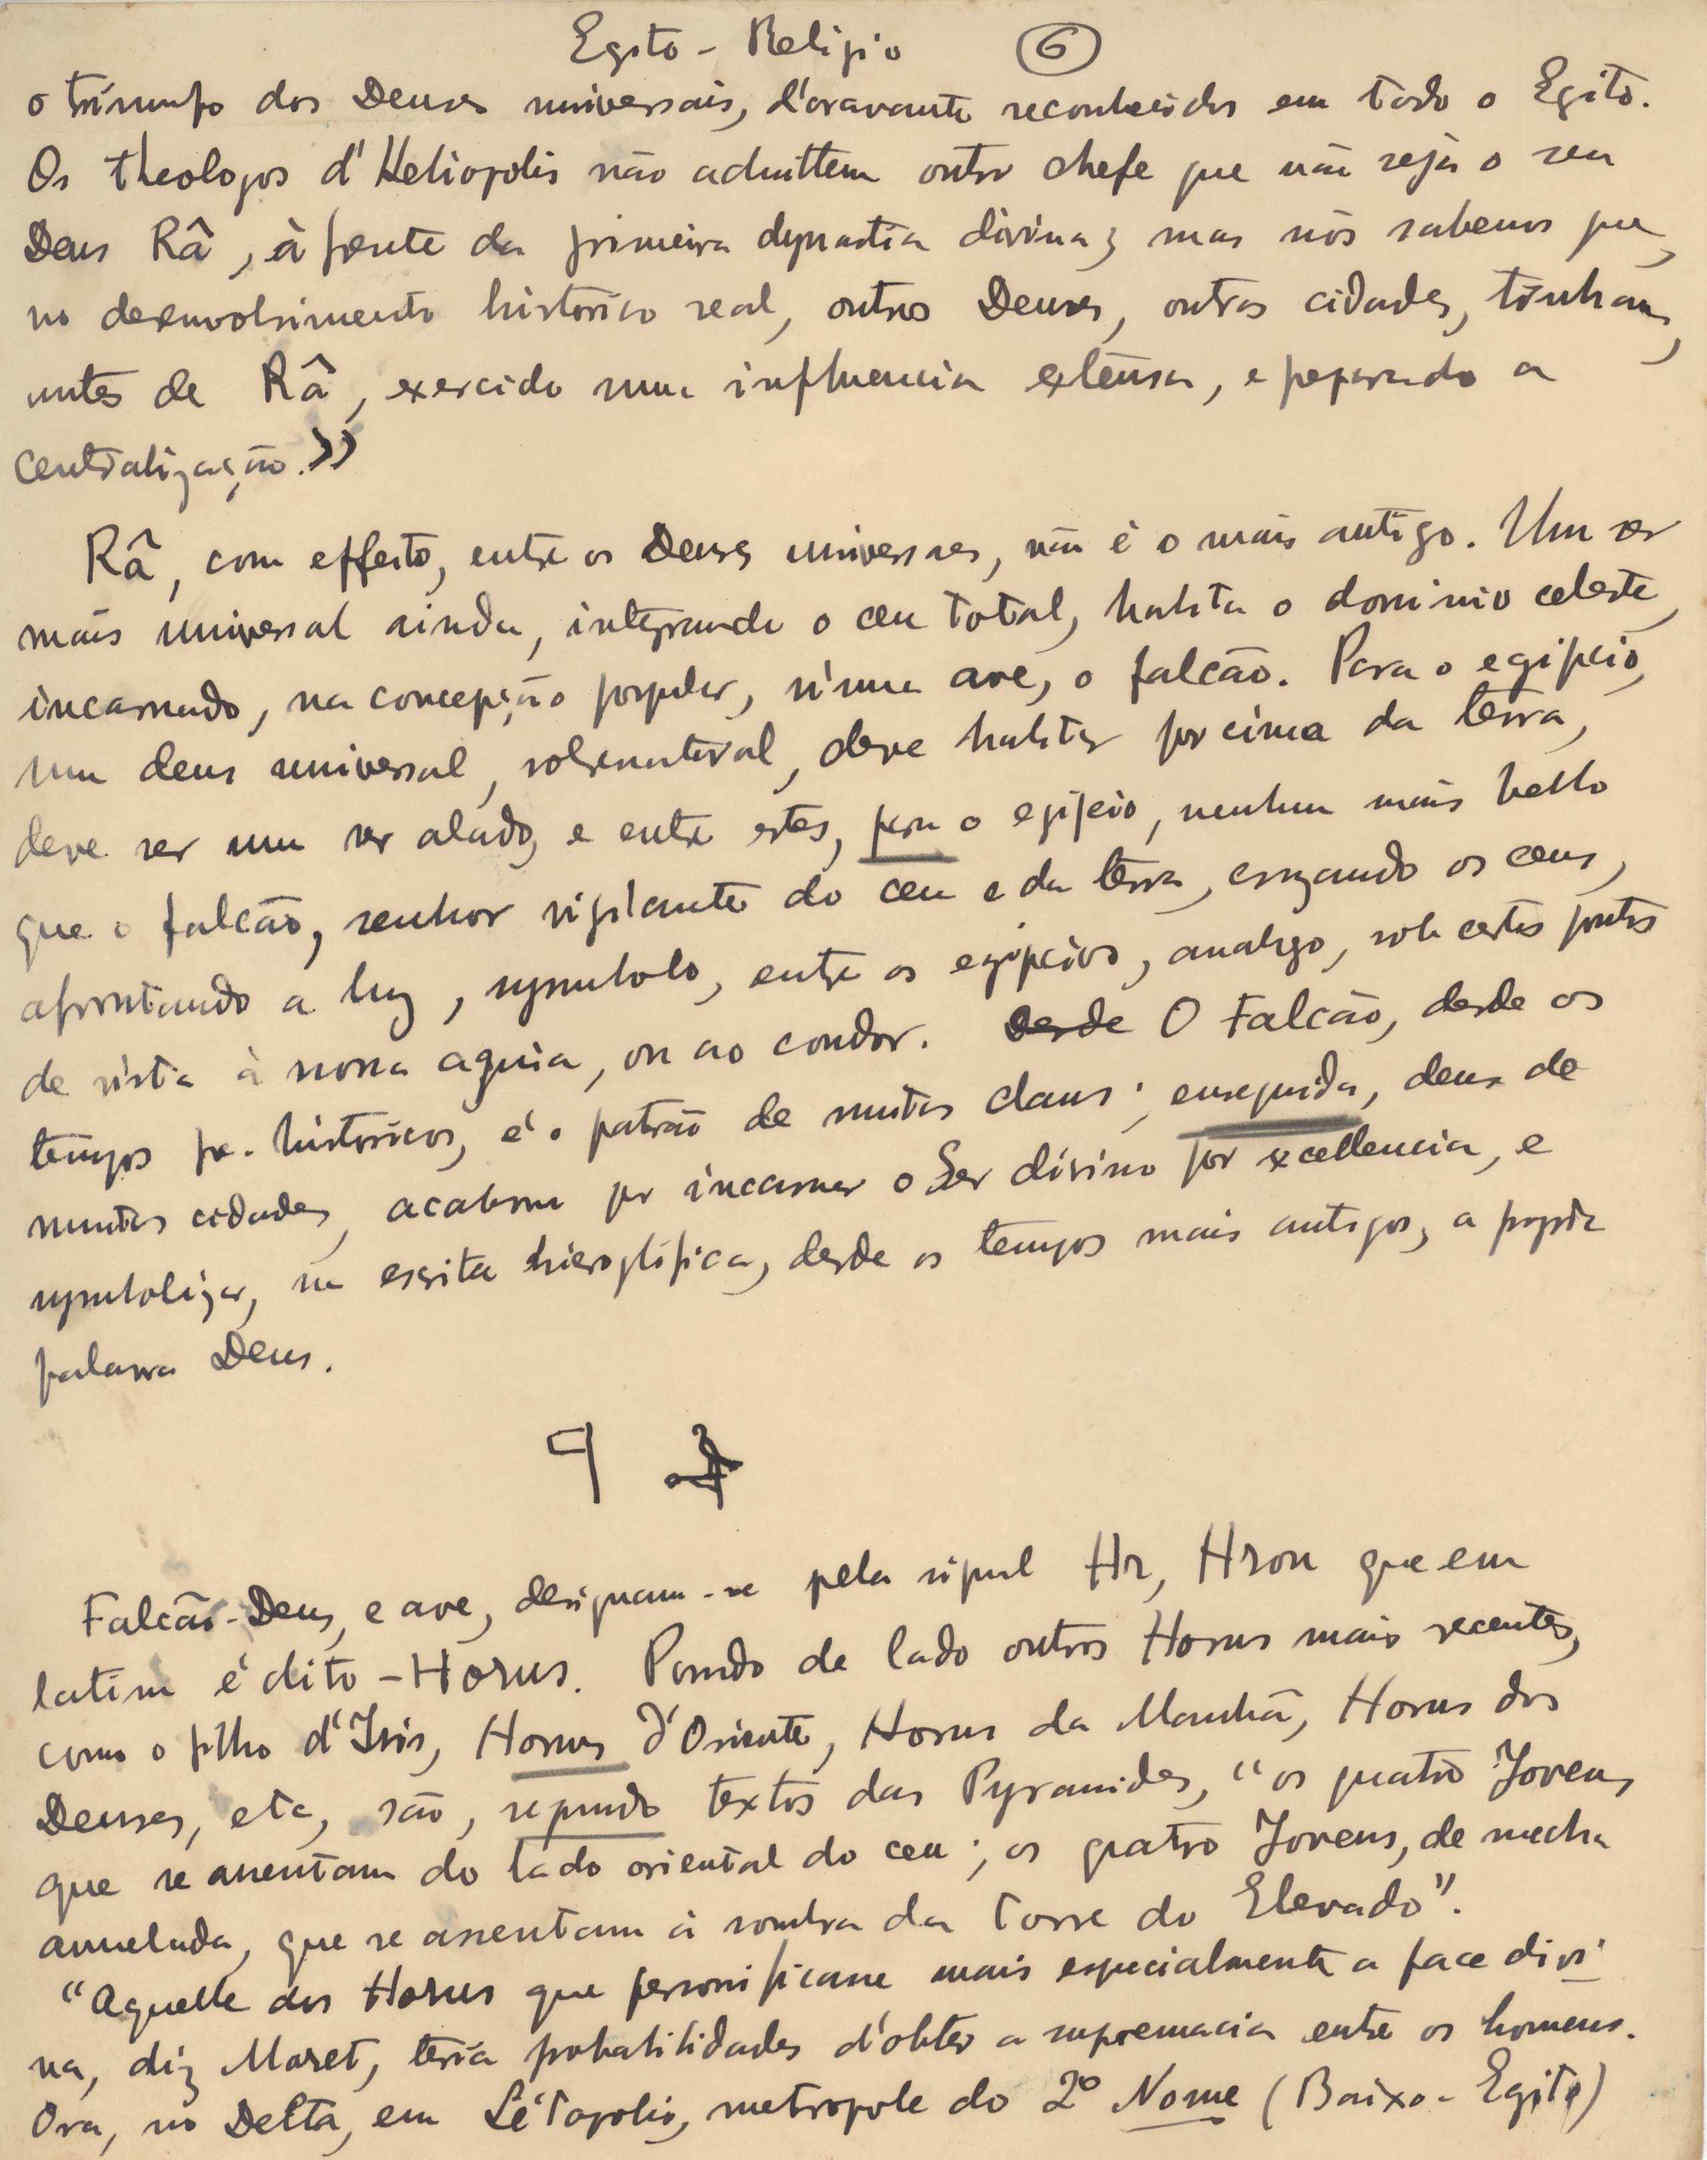 Egito - Religio 6
o triumfo dos Deuses universais, d'oravante reconhecidos em todo o Egito.
Os theologos d'Heliopolis não admittem outro chefe que não seja o seu
Deus Râ, à frente da primeira dynastia divina; mas nós sabemos que,
no desenvolvimento historico real, outros Deuses, outras cidades, tinham,
antes de Râ, exercido uma influencia extensa, e preparado a
centralização.»
Rã, com effeito, entre os Deuses universaes, não é o mais antigo. Um ser
mais universal ainda, integrando o ceu total, habita o dominio celeste,
incarnado, na concepção popular, n'uma ave, o falcão. Para o egipcio,
um deus universal, sobrenatural, deve habitar por cima da terra,
deve ser um ser alado, e entre estes, para o egipcio, nenhum mais bello
que o falcão, senhor vigilante do ceu e da terra, cruzando os ceus,
afrontando a luz, symbolo, entre os egipcios, analogo, sob certos pontos
de vista à nossa aguia, ou ao condor. Desde O Falcão, desde os
tempos pre-historicos, é o patrão de muitos clans; enseguida, deus de
muitas cidades, acabou por incarnar o Ser divino por excellencia, e
symbolizar, na escrita hieroglifica, desde os tempos mais antigos, a propria
palavra Deus.
Falcão-Deus, e ave, designam-se pela signal Hr, Hrou que em
latim é dito - Horus. Pondo de lado outros Horus mais recentes,
como o filho d'Isis, Horus d'Oriente, Horus da Manhã, Horus dos
Deuses, etc, são, segundo textos das Pyramides, "os quatro Jovens
que se assentam do lado oriental do ceu; os quatro Jovens, de mecha
annelada, que se assentam à sombra da Torre do Elevado".
"Aquelle dos Horus que personificasse mais especialmente a face divi
na, diz Moret, teria probabilidades d'obter a supremacia entre os homens.
Ora, no Delta, em Létopolis, metropole do 2º Nome (Baixo-Egito)